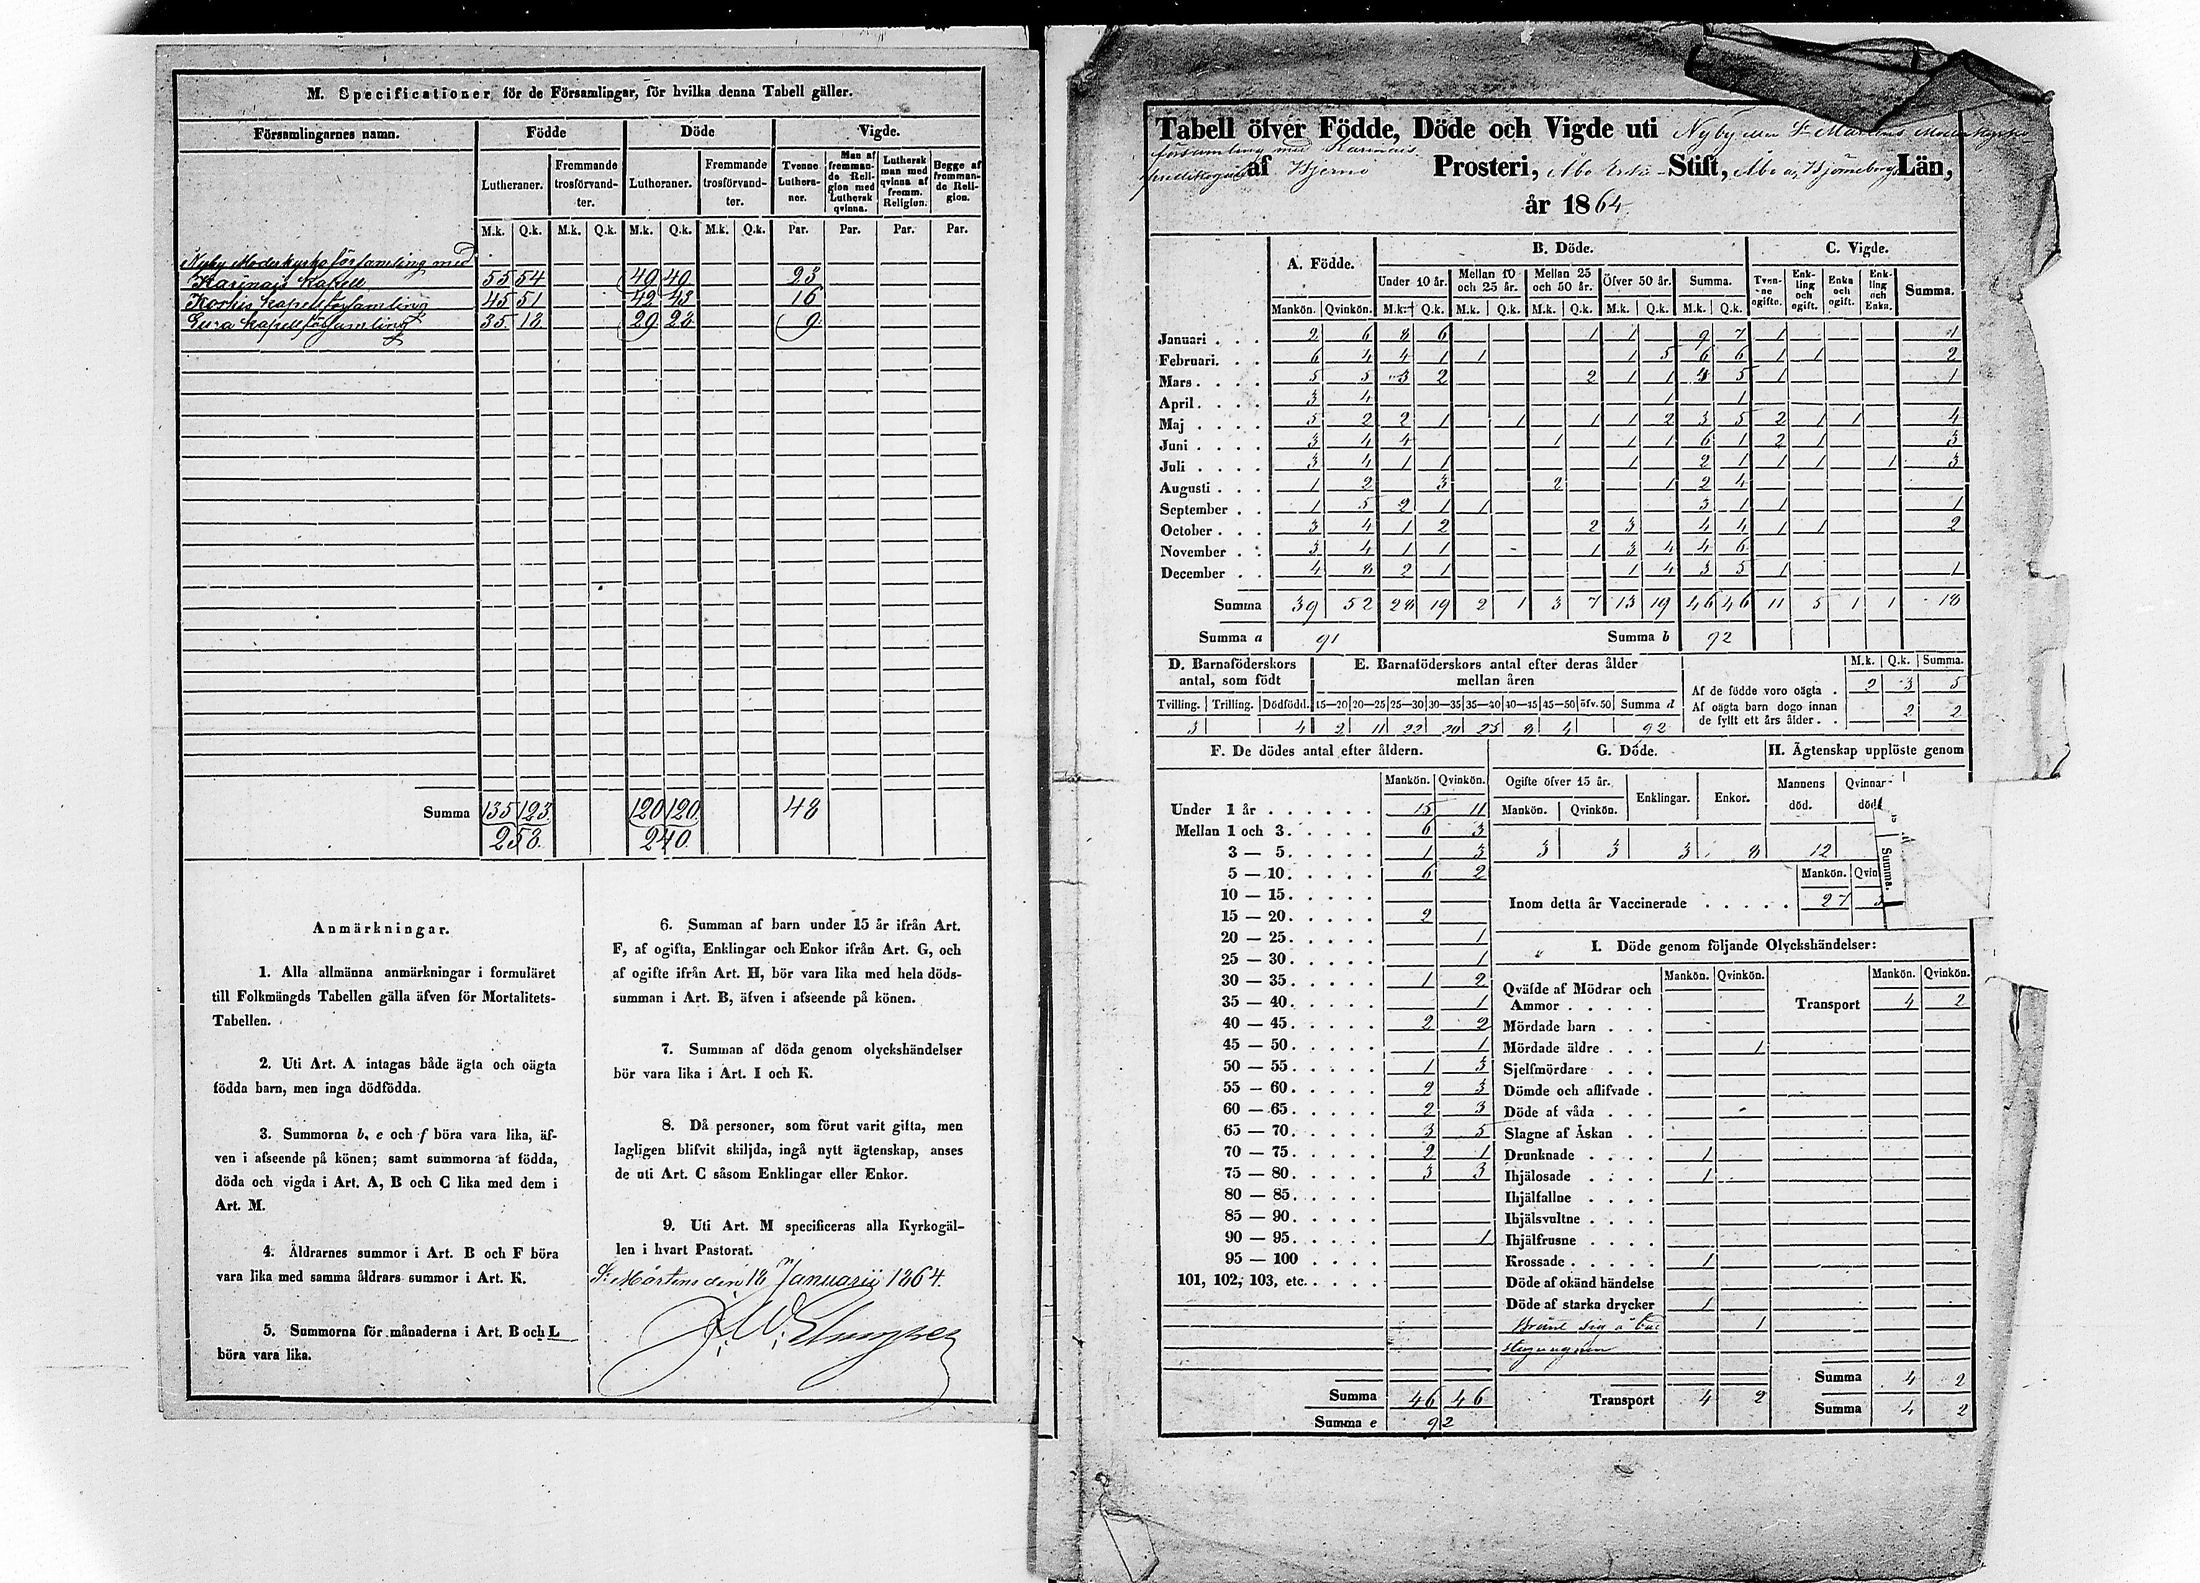 M. Specificationer för de Församlingar, för hvilka denna Tabell gäller.
Församlingarnes namn. Födde Döde Vigde.
Lutheraner. Fremmande trosförvandter. Lutheraner. Fremmande trosförvandter. Tvenne Lutheraner. Man af fremmande Religion med Luthersk qvinna. Luthersk man med qvinna af fremm. Religion. Begge af fremmande Religion.
M.k. Q.k. M.k. Q.k. M.k. Q.k. M.k. Q.k. Par. Par. Par. Par.
Nyby Moderkyrko församling med
Karinais Kapell 55 54 49 49 23
Koskis kapellförsamling 45 51 42 43 16
Eura kapellförsamling 35 18 29 28 9
Summa 135 123 120 120 48
258 240
Anmärkningar.
1. Alla allmänna anmärkningar i formuläret
till Folkmängds Tabellen gälla äfven för Mortalitets-
Tabellen.
2. Uti Art. A intagas både ägta och oägta
födda barn, men inga dödfödda.
3. Summorna b, e och f böra vara lika, äf-
ven i afseende på könen; samt summorna af födda,
döda och vigda i Art. A, B och C lika med dem i
Art. M.
4. Åldrarnes summor i Art. B och F böra
vara lika med samma åldrars summor i Art. K.
5. Summorna för månaderna i Art. B och L
böra vara lika.
6. Summan af barn under 15 år ifrån Art.
F, af ogifta, Enklingar och Enkor ifrån Art. G, och
af ogifte ifrån Art. H, bör vara lika med hela döds-
summan i Art. B, äfven i afseende på könen.
7. Summan af döda genom olyckshändelser
bör vara lika i Art. I och K.
8. Då personer, som förut varit gifta, men
lagligen blifvit skiljda, ingå nytt ägtenskap, anses
de uti Art. C såsom Enklingar eller Enkor.
9. Uti Art. M specificeras alla Kyrkogäl-
len i hvart Pastorat.
St Mårtens den 18 Januarii 1864.
Tabell öfver Födde, Döde och Vigde uti Nyby eller St Mårtens Moderkyrko
församling med Karinais
af Bjerno Prosteri, Åbo Erke-Stift, Åbo o. Björneborgs Län,
år 1864
A. Födde. B. Döde. C. Vigde.
Under 10 år. Mellan 10 och 25 år. Mellan 25 och 50 år. Öfver 50 år. Summa. Tvenne ogifte. Enkling och ogift. Enka och ogift. Enkling och Enka. Summa.
Mankön. Qvinkön. M.k. Q.k. M.k. Q.k. M.k. Q.k. M.k. Q.k. M.k. Q.k.
Januari 2 6 8 6 1 1 9 7 1 1
Februari. 6 4 4 1 1 1 5 6 6 1 1 2
Mars 5 5 3 2 2 1 1 4 5 1 1
April 3 4 1 1
Maj 5 2 2 1 1 1 1 2 3 5 2 1 1 4
Juni 3 4 4 1 1 1 6 1 2 1 3
Juli 3 4 1 1 1 2 1 1 1 1 3
Augusti 1 2 3 2 1 2 4
September 1 5 2 1 1 3 1 1 1
October 3 4 1 2 2 3 4 4 1 1 2
November 3 4 1 1 1 3 4 4 6
December 4 8 2 1 1 4 3 5 1 1
Summa 39 52 28 19 2 1 3 7 13 19 46 46 11 5 1 1 18
Summa a 91 Summa b 92
D. Barnaföderskors antal, som födt
E. Barnaföderskors antal efter deras ålder mellan åren
M.k. Q.k. Summa.
Af de födde voro oägta 2 3 5
Af oägta barn dogo innan de fyllt ett års ålder 2 2
Tvilling. Trilling. Dödfödd. 15—20 20—25 25—30 30—35 35—40 40—45 45—50 öfv. 50 Summa d
3 4 2 11 22 20 25 8 4 92
F. De dödes antal efter åldern.
Mankön. Qvinkön.
Under 1 år 15 11
Mellan 1 och 3 6 3
3 — 5 1 3
5 — 10 6 2
10 — 15
15 — 20 2
20 — 25 1
25 — 30 1
30 — 35 1 2
35 — 40 1
40 — 45 2 2
45 — 50 1
50 — 55 1 3
55 — 60 2 3
60 — 65 2 3
65 — 70 3 5
70 — 75 2 1
75 — 80 3 3
80 — 85
85 — 90
90 — 95 1
95 — 100
101, 102, 103, etc.
Summa 46 46
Summa e 92
G. Döde. H. Ägtenskap upplöste genom
Ogifte öfver 15 år. Enklingar. Enkor. Mannens död. Qvinnar
Mankön. Qvinkön.
3 3 3 8 12
Summa.
Mankön. Qvin
Inom detta år Vaccinerade 27
I. Döde genom följande Olyckshändelser:
Mankön. Qvinkön. Mankön. Qvinkön.
Qväfde af Mödrar och Ammor Transport 4 2
Mördade barn
Mördade äldre 1
Sjelfmördare
Dömde och aflifvade
Döde af våda
Slagne af Åskan
Drunknade 1
Ihjälosade 1
Ihjälfallne
Ihjälsvultne
Ihjälfrusne
Krossade 1
Döde af okänd händelse
Döde af starka drycker 1
Bränt sig 1
Summa 4 2
Transport 4 2 Summa 4 2